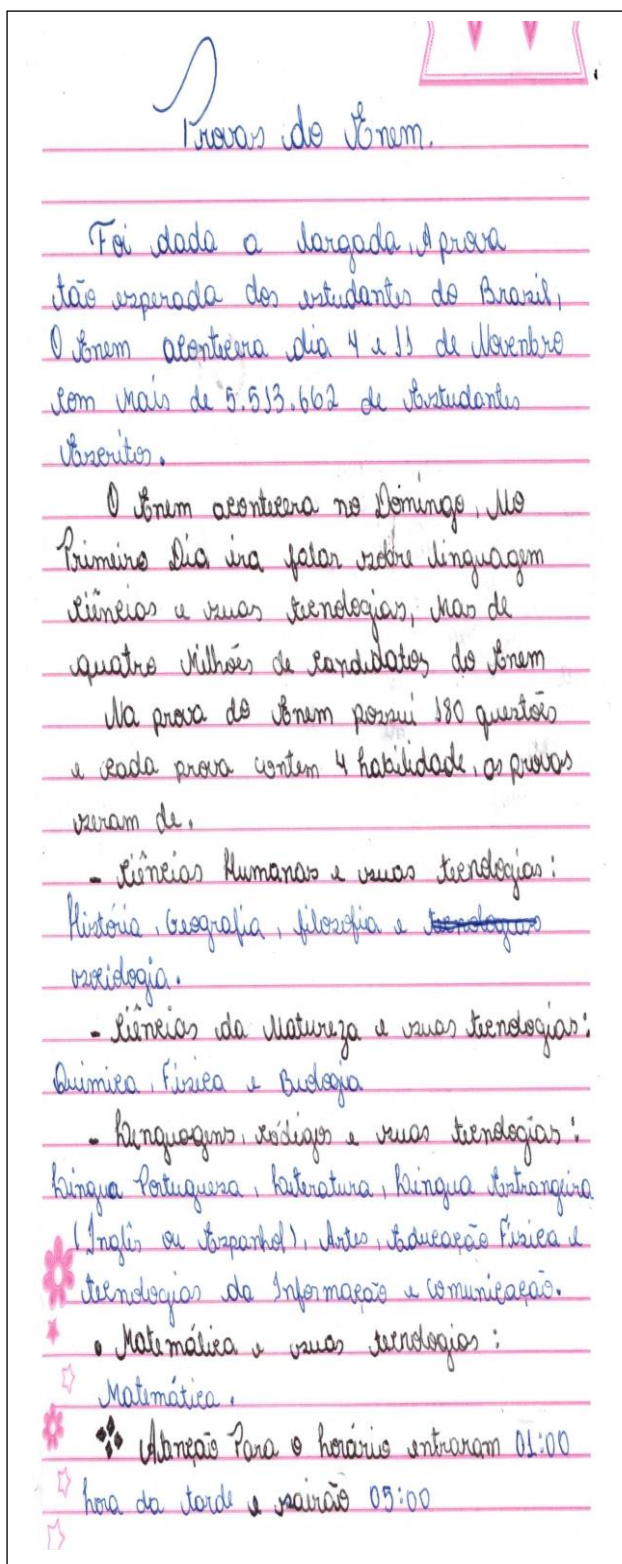 Provas do Enem.
Foi dada a largada, A prova
tão esperada dos estudantes do Brazil,
O Enem acontecera dia 4 e 11 de Novenbro
com mais de 5.513.662 de Estudantes
Escritos.
O Enem acontecera no Domingo, No
Primeiro Dia ira falar sobre linguagem
ciências e suas tecnologias, mas de
quatro Milhões de candidatos do Enem
Na prova do Enem possui 180 questões
e cada prova contem 4 habilidade, as provas
seram de.
- Ciências Humanas e suas tecnologias:
História, Geografia, filosofia e tecnologias
sociologia.
- Ciências da Natureza e suas tecnologias:
Quimica, Física e Biologia
- Linguagens, códigos e suas tecnologias:
Língua Portuguesa, Literatura, Língua Estrangeira
(Inglês ou Espanhol), Artes, Educação Física e
tecnologias da Informação e comunicação.
• Matemática e suas tecnologias:
Matemática.
❖ Atenção Para o horário entraram 01:00
hora da tarde e sairão 05:00